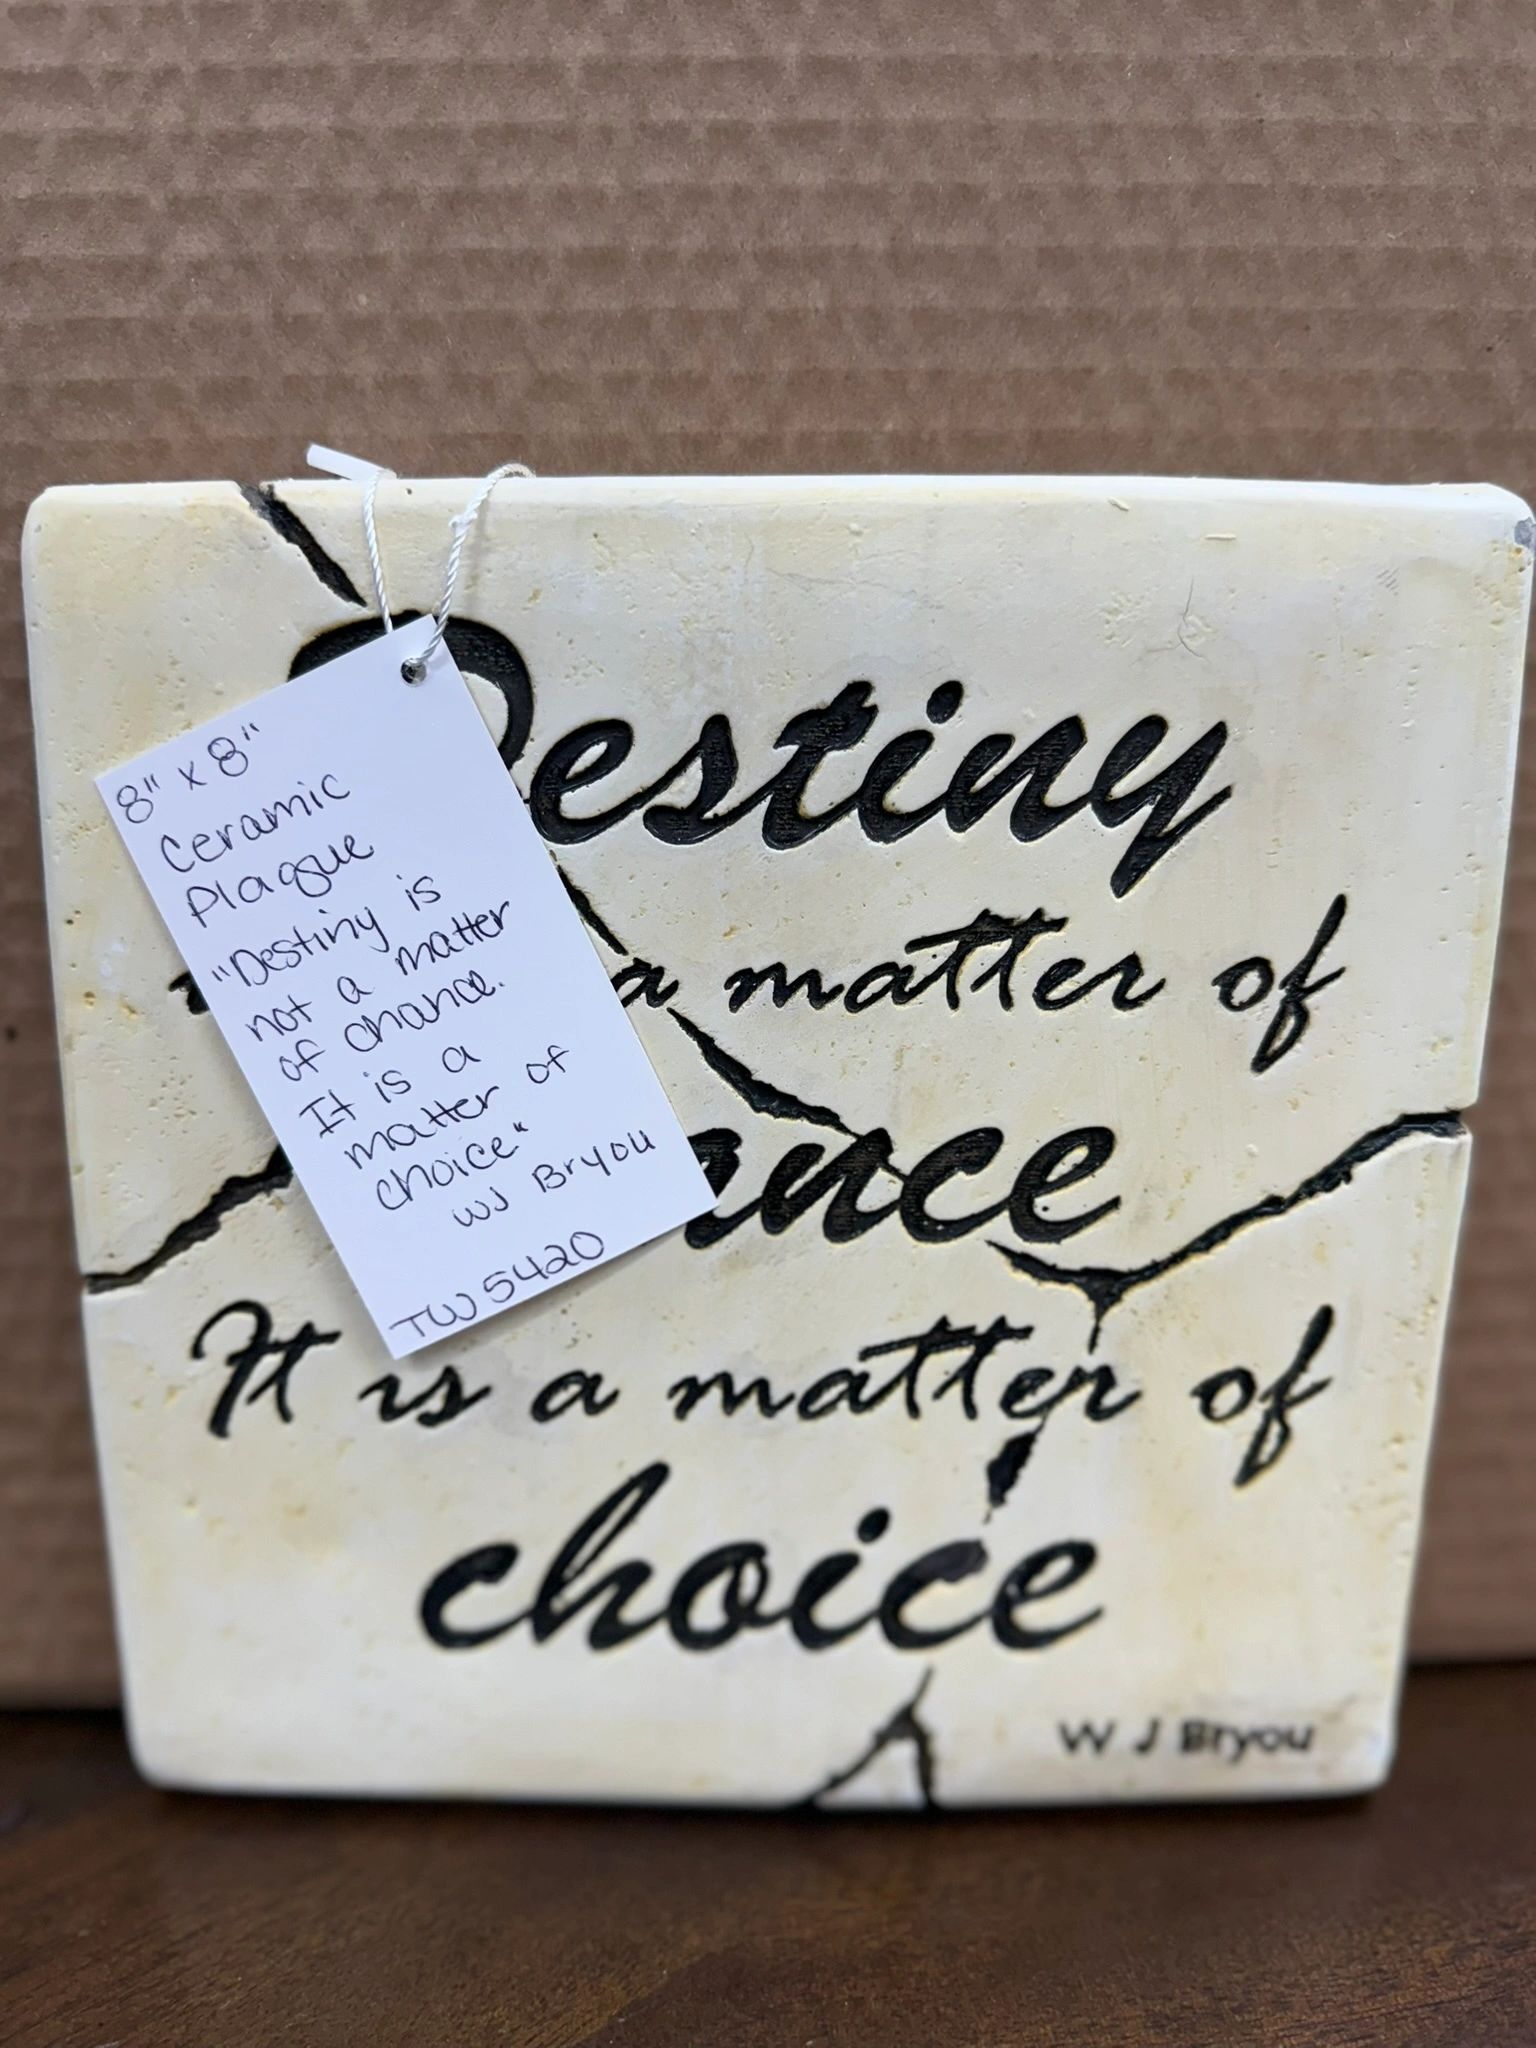 8" x 8"
Ceramic
Plaque
"Destiny is
not a matter
of chance.
It is a
matter of
choice"
WJ Bryou
TW5420
Destiny
a matter of
ance
It is a matter of
choice
W J Bryou